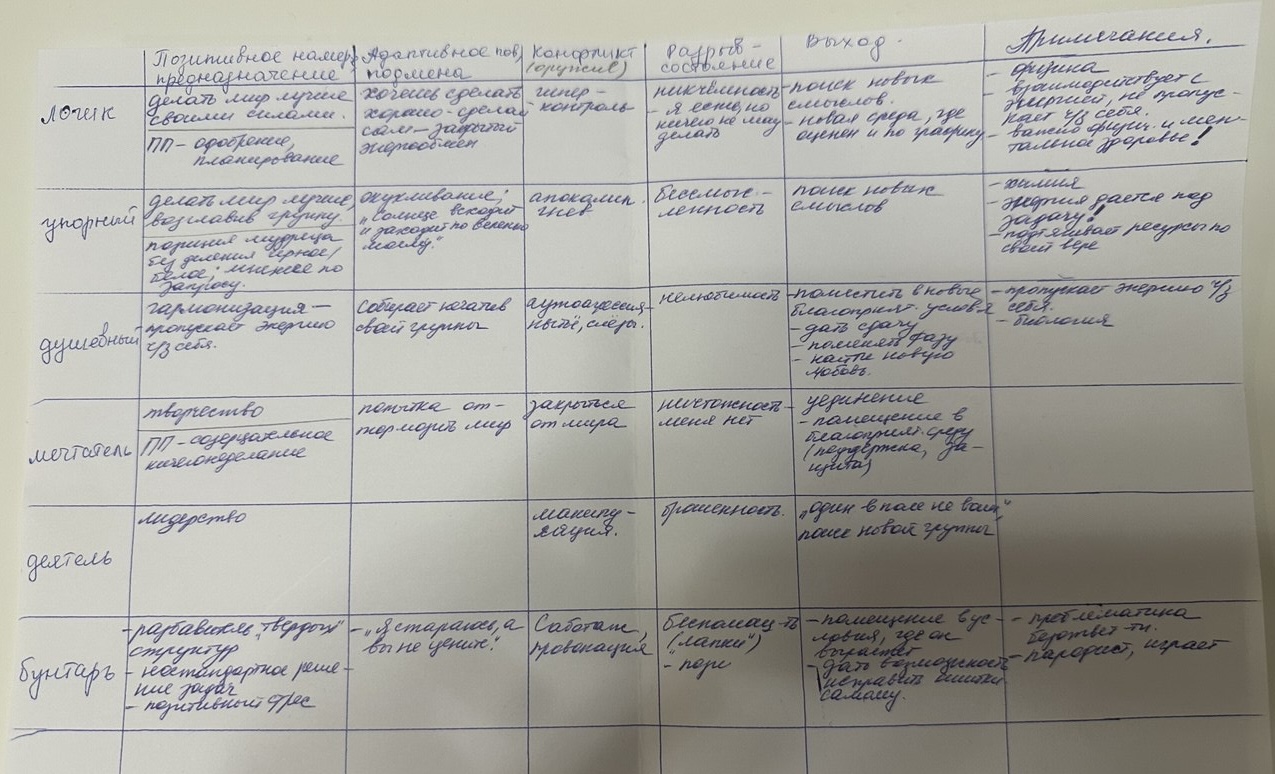 Позитивное намер. предназначение
Адаптивное пов, подмена
Конфликт (оружие)
Разрыв - состояние
Выход.
Примечания.
логик
делать мир лучше
своими силами.
ПП - одобрение,
планирование
хочешь сделать
хорошо - сделай
сам - закрытый
энергообмен
гипер -
контроль
никчёмность
- я есть, но
ничего не могу
делать
- поиск новых
смыслов.
- новая среда, где
оценен и по графику
- физика
- взаимодействует с
энергией, не пропус-
кает ч/з себя.
- важно физич. и мен-
тальное здоровье!
упорный
делать мир лучше
возглавив группу.
позиция мудреца
без деления чёрное/
белое; мнение по
запросу.
окукливание;
„Солнце всходит
и заходит по велению
моему."
апокалип.
гнев
бессмыс -
ленность
поиск новых
смыслов
- химия
- энергия дается под
задачу!
- подтягивает ресурсы по
своей вере
душевный
гармонизация -
пропускает энергию
ч/з себя.
Собирает негатив
своей группы
аутоагрессия
нытьё, слёзы.
нелюбимость
- поместить в новые
благоприят. услов-я
- дать сдачу
- поменять фазу
- найти новую
любовь.
- пропускает энергию ч/з
себя.
- биология
мечтатель
творчество
ПП - созерцательное
ничегонеделание
попытка от-
тормозить мир
закрыться
от мира
ничтожность
меня нет
- уединение
- помещение в
благоприят. среду
(поддержка, за-
щита)
деятель
лидерство
манипу -
ляция.
брошенность.
„один в поле не воин"
поиск новой группы
бунтарь
- разбавитель „твердых"
структур
- нестандартное реше-
ние задач
- позитивный фрес
- „Я стараюсь, а
вы не цените".
Саботаж,
провокация
беспомощ-ть
(„лапки")
- пози
- помещение в ус-
ловия, где он
вырастет
- дать возможность
исправить ошибки
самому.
- проблематика
безответ-ти.
- пародист, играет